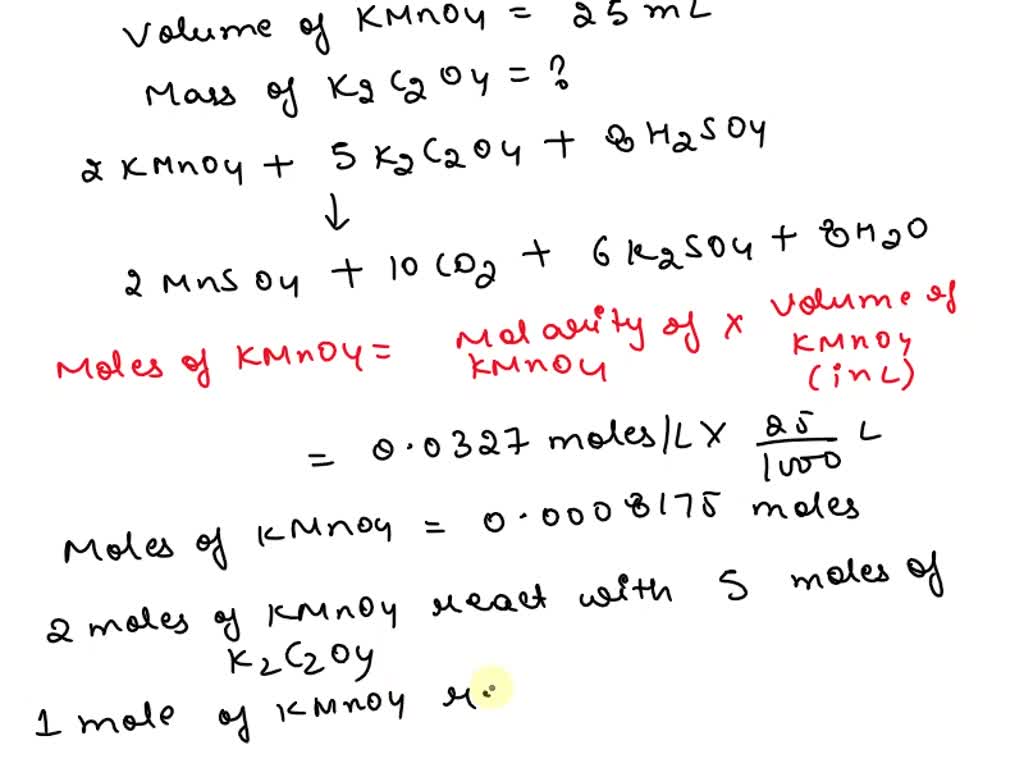 Volume of KMnO4 = 25 mL
Mass of K2C2O4 = ?
2 KMnO4 + 5 K2C2O4 + 8 H2SO4
↓
2 MnSO4 + 10 CO2 + 6 K2SO4 + 8H2O
Moles of KMnO4 = Molarity of KMnO4 × Volume of KMnO4 (in L)
= 0.0327 moles/L × 25/1000 L
Moles of KMnO4 = 0.0008175 moles
2 moles of KMnO4 react with 5 moles of
K2C2O4
1 mole of KMnO4 r